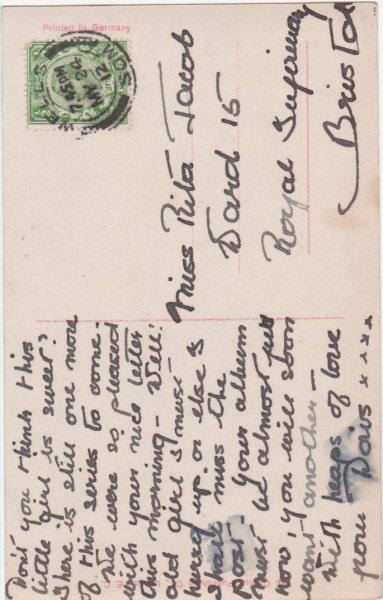 Printed in Germany
WELLS SOM
7.45 PM
MY 24
12
Miss Rita Jacob
Ward 15
Royal Infirmary
Bristol
Don't you think this
little girl is sweet?
There is still one more
of this series to come.
We were so pleased
with your nice letter
this morning - Well:
old girl I must
hurry up or else I
shall miss the
post. Your album
must be almost full
now, you will soon
want another -
With heaps of love
from Doris xxxx